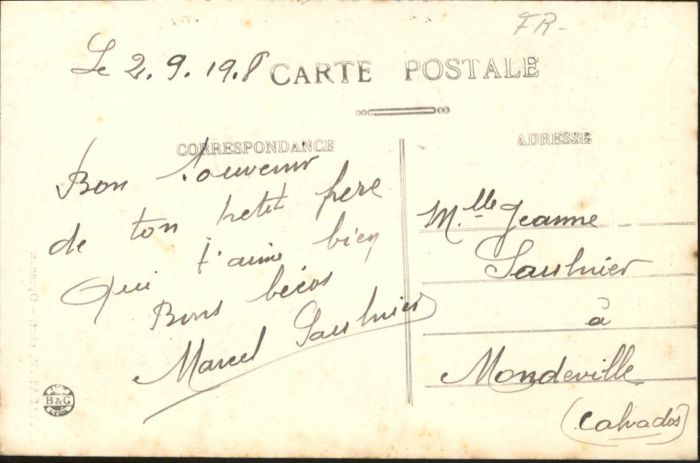 FR-
Le 2.9.19.8
CARTE POSTALE
CORRESPONDANCE
ADRESSE
Bon Souvenir
de ton petit père
Qui t'aime bien
Bons bécos
Marcel Saulnier
M.lle Jeanne
Saulnier
à
Mondeville
(Calvados)
B&G
LYON